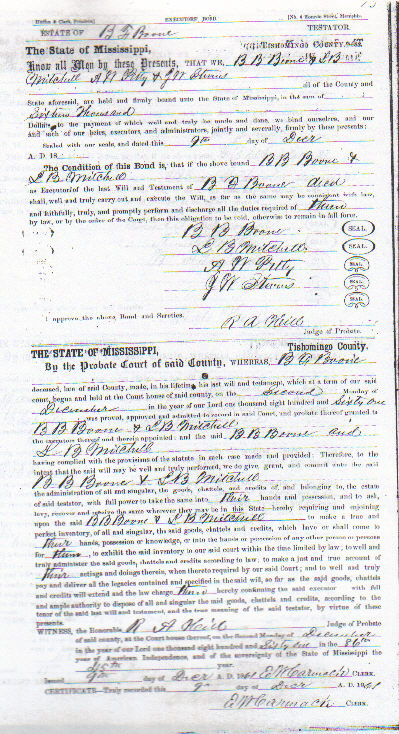 EXECUTORS' BOND
ESTATE OF B F Boone TESTATOR.
The State of Mississippi, TISHOMINGO COUNTY.
Know all Men by these Presents, THAT WE, B B Boone & L B
Mitchell A W Petty & J W all of the County and
State aforesaid, are held and firmly bound unto the State of Mississippi, in the sum of
Thousand
Dollars, to the payment of which well and truly be made and done, we bind ourselves, and our
and each of our heirs, executors, and administrators, jointly and severally, firmly by these presents:
Sealed with our seals, and dated this 9th day of Decr
A. D. 18
The Condition of this Bond is, that if the above bound B B Boone &
L B Mitchell
as Executors of the last Will and Testament of B F Boone decd
shall, well and truly carry out and execute the Will, so far as the same may be consistent with law,
and faithfully, truly, and promptly perform and discharge all the duties required of them
by law, or by the order of the Court, then this obligation to be void, otherwise to remain in full force.
B B Boone SEAL
L B Mitchell SEAL
A W Petty SEAL
J W SEAL
SEAL
I approve the above Bond and Sureties.
R A Hill
Judge of Probate.
THE STATE OF MISSISSIPPI, Tishomingo County.
By the Probate Court of said County, WHEREAS, B F Boone
deceased, late of said County, made, in his lifetime, his last will and testament, which at a term of our said
court, begun and held at the Court house of said county, on the Second Monday of
December in the year of our Lord one thousand eight hundred and Sixty one
was proved, approved and admitted to record in said Court, and probate thereof granted to
B B Boone & L B Mitchell
the executors thereof and therein appointed: and the said B B Boone and
L B Mitchell
having complied with the provisions of the statute in such case made and provided: Therefore, to the
intent that the said will may be well and truly performed, we do give, grant, and commit unto the said
B B Boone & L B Mitchell
the administration of all and singular, the goods, chattels, and credits of, and belonging to, the estate
of said testator, with full power to take the same into their hands and possession, and to ask,
levy, recover and receive the same wherever they may be in this State—hereby requiring and enjoining
upon the said B B Boone & L B Mitchell to make a true and
perfect inventory, of all and singular, the said goods, chattels and credits, which have or shall come to
their hands, possession or knowledge, or into the hands or possession of any other person or persons
for them, to exhibit the said inventory in our said court within the time limited by law; to well and
truly administer the said goods, chattels and credits according to law; to make a just and true account of
their actings and doings therein, when thereto required by our said Court; and to well and truly
pay and deliver all the legacies contained and specified in the said will, so far as the said goods, chattels
and credits will extend and the law charge them hereby confirming the said executor with full
and ample authority to dispose of all and singular the said goods, and chattels, and credits, according to the
tenor of the said last will and testament, and the true meaning of the said testator, by virtue of these
presents.
WITNESS, the Honorable R A Hill Judge of Probate
of said county, at the Court house thereof, on the Second Monday of December
in the year of our Lord one thousand eight hundred and Sixty one in the 86th
year of American Independence, and of the sovereignty of the State of Mississippi the
45th year.
Issued 9th day of Decr A. D. 1861 E W Carmack CLERK.
CERTIFICATE—Truly recorded this 9th day of Decr A. D. 1861
E W Carmack CLERK.